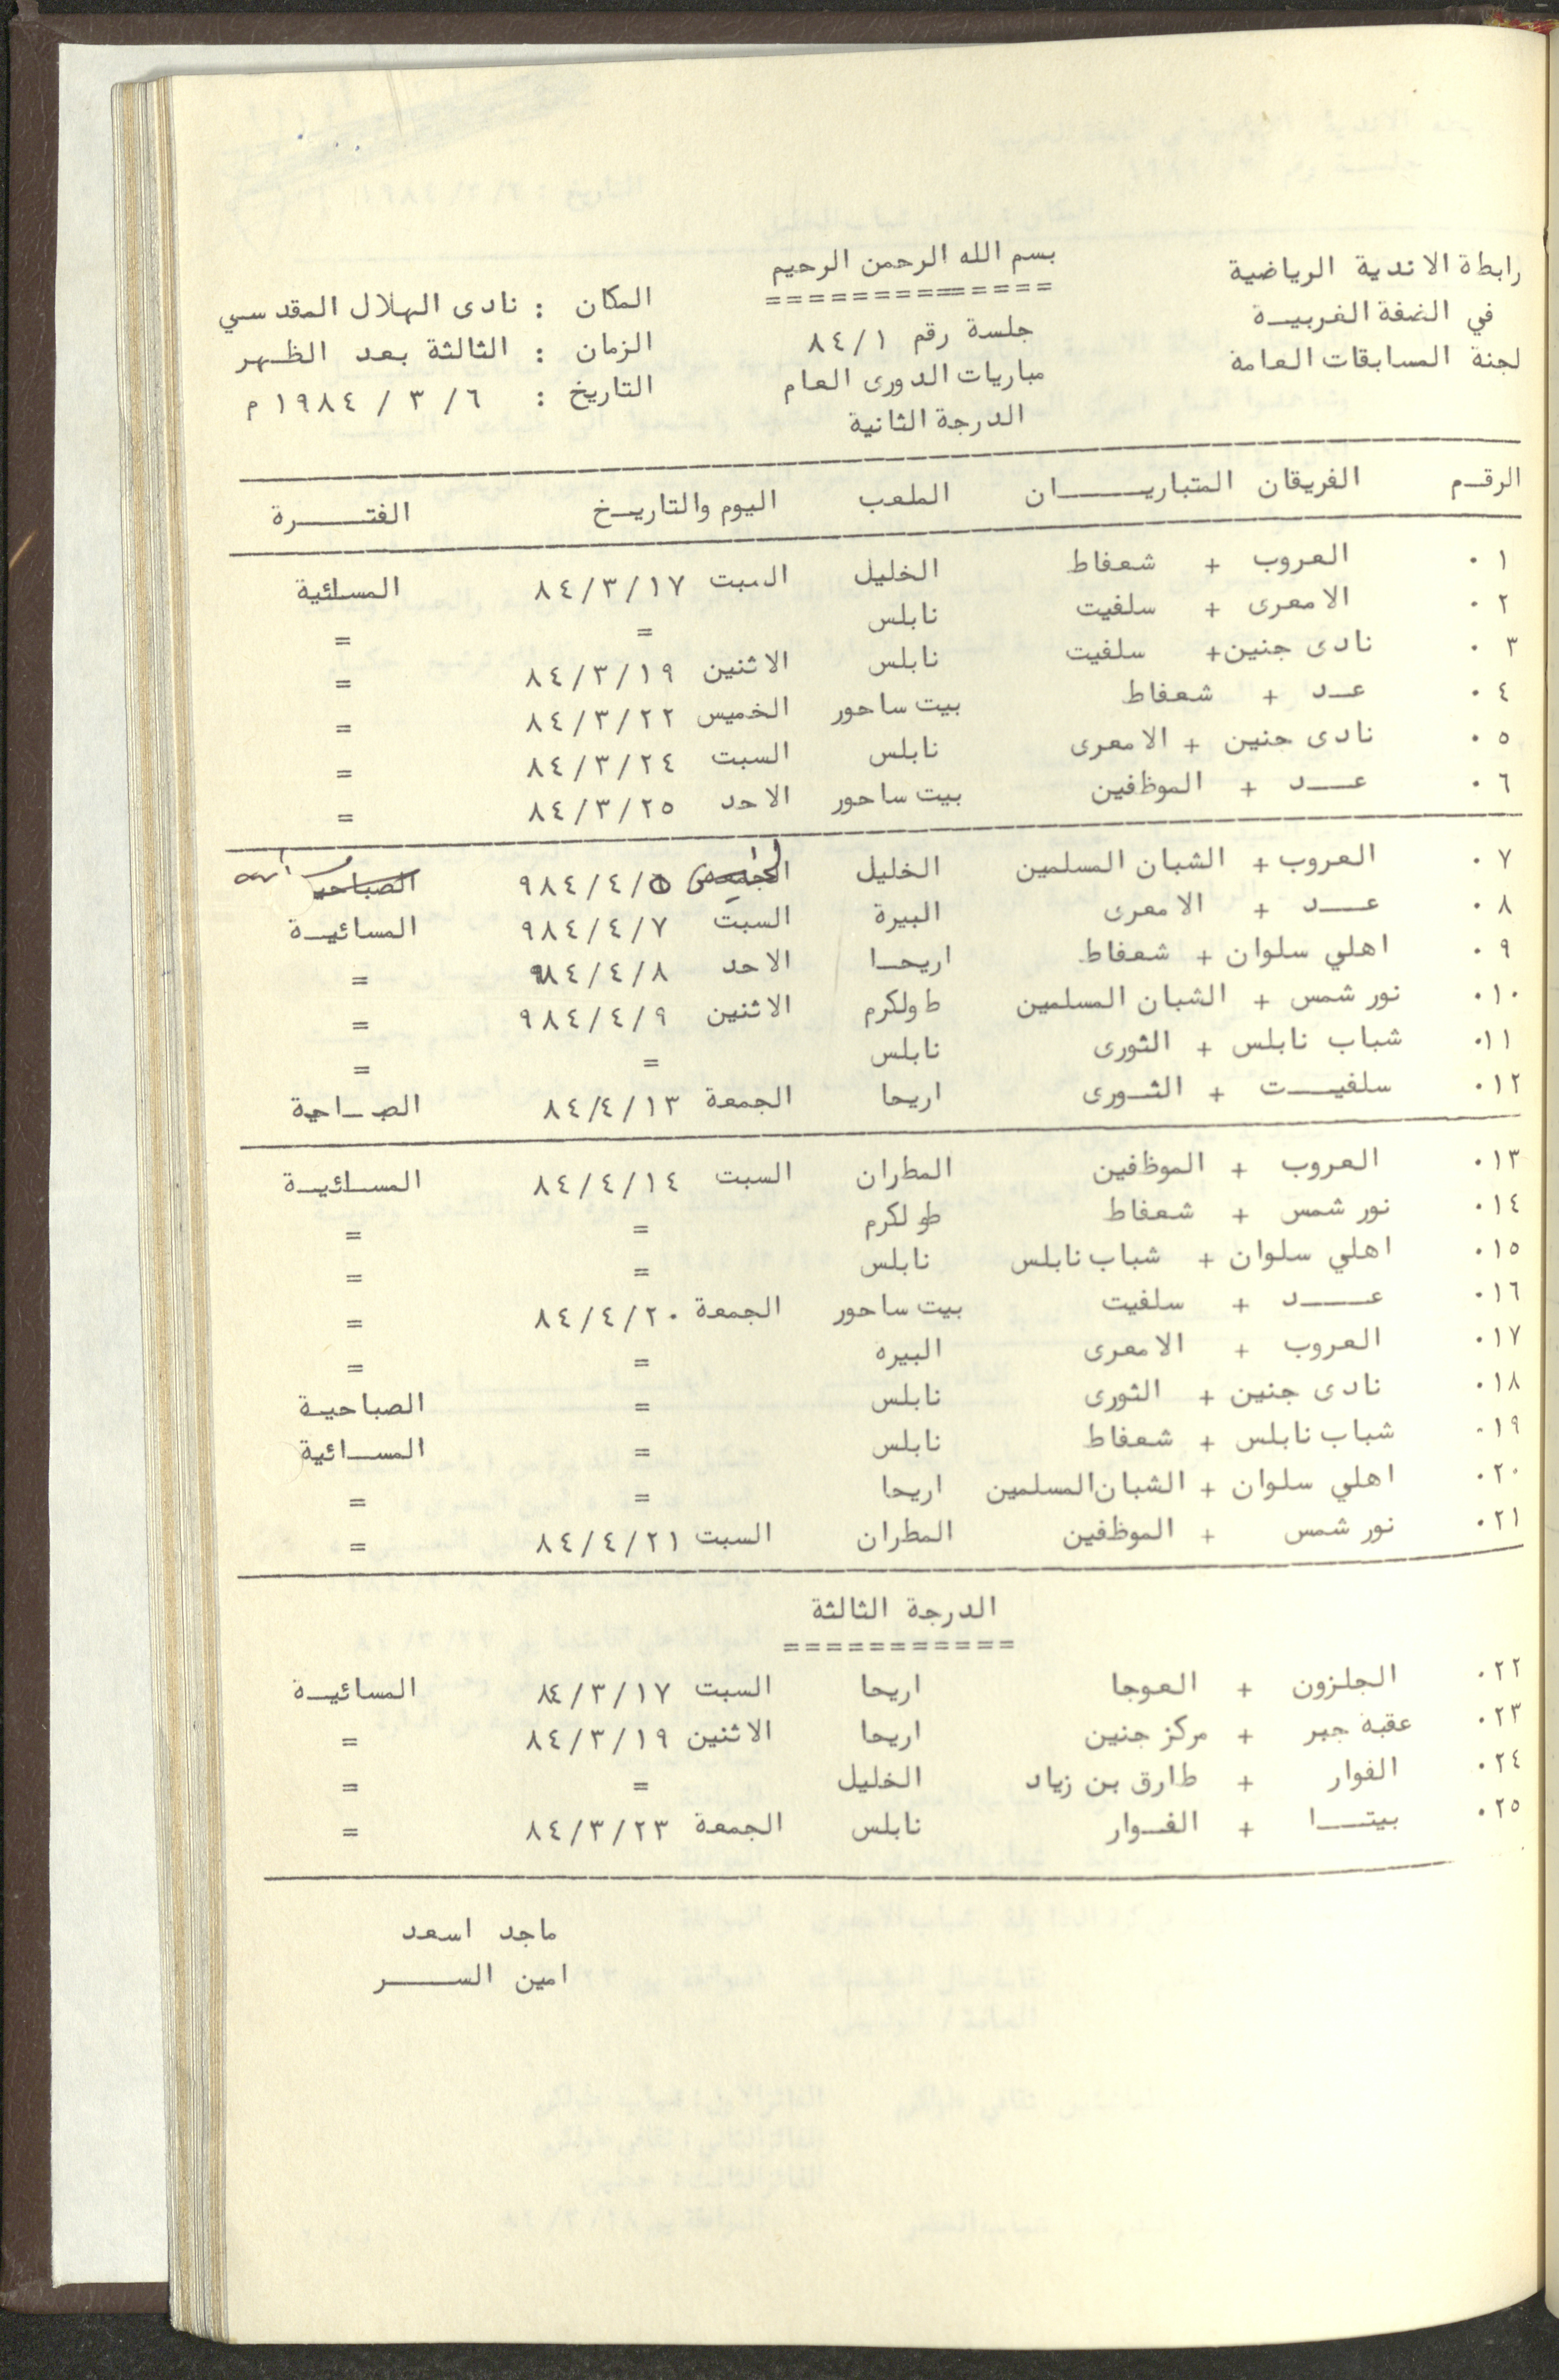 بسم الله الرحمن الرحيم
رابطة الاندية الرياضية
في الضفة الغربية
لجنة المسابقات العامة
جلسة رقم ٨٤/١
مباريات الدورى العام
الدرجة الثانية
المكان : نادى الهلال المقدسي
الزمان : الثالثة بعد الظهر
التاريخ : ٦/ ٣ / ١٩٨٤م
الرقم الفريقان المتباريان الملعب اليوم والتاريخ الفترة
١٠ العروب + شعفاط الخليل السبت ٨٤/٣/١٧ المسائية
٢٠ الامعرى + سلفيت نابلس = =
٣٠ نادى جنين + سلفيت نابلس الاثنين ٨٤/٣/١٩ =
٤٠ عد + شعفاط بيت ساحور الخميس ٨٤/٣/٢٢ =
٥٠ نادى جنين + الامعرى نابلس السبت ٨٤/٣/٢٤ =
٦٠ عد + الموظفين بيت ساحور الاحد ٨٤/٣/٢٥ =
٧٠ العروب + الشبان المسلمين الخليل الخميس ٩٨٤/٤/٥ الصباحية
٨٠ عد + الامعرى البيرة السبت ٩٨٤/٤/٧ المسائية
٩٠ اهلي سلوان + شعفاط اريحا الاحد ٩٨٤/٤/٨ =
١٠٠ نور شمس + الشبان المسلمين طولكرم الاثنين ٩٨٤/٤/٩ =
١١٠ شباب نابلس + الثورى نابلس = =
١٢٠ سلفيت + الثورى اريحا الجمعة ٨٤/٤/١٣ الصباحية
١٣٠ العروب + الموظفين المطران السبت ٨٤/٤/١٤ المسائية
١٤٠ نور شمس + شعفاط طولكرم = =
١٥٠ اهلي سلوان + شباب نابلس نابلس = =
١٦٠ عد + سلفيت بيت ساحور الجمعة ٨٤/٤/٢٠ =
١٧٠ العروب + الامعرى البيره = =
١٨٠ نادى جنين + الثورى نابلس = الصباحية
١٩٠ شباب نابلس + شعفاط نابلس = المسائية
٢٠٠ اهلي سلوان + الشبان المسلمين اريحا = =
٢١٠ نور شمس + الموظفين المطران السبت ٨٤/٤/٢١ =
الدرجة الثالثة
٢٢٠ الجلزون + العوجا اريحا السبت ٨٤/٣/١٧ المسائية
٢٣٠ عقبة جبر + مركز جنين اريحا الاثنين ٨٤/٣/١٩ =
٢٤٠ الفوار + طارق بن زياد الخليل = =
٢٥٠ بيتا + الفوار نابلس الجمعة ٨٤/٣/٢٣ =
ماجد اسعد
امين السر